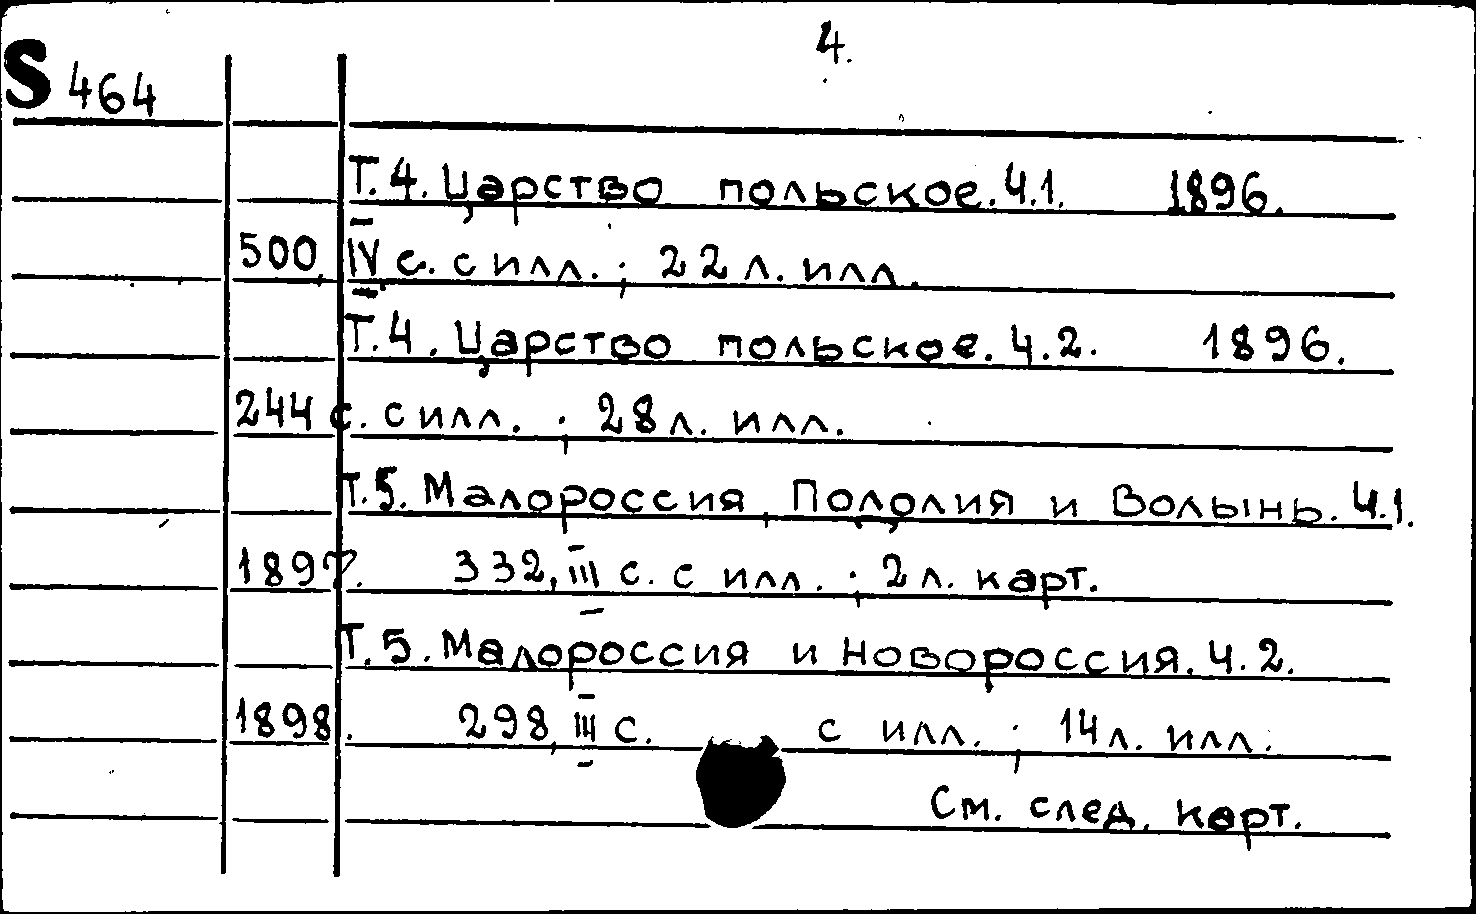 4.
S 464
Т.4. Царство польское. Ч.1. 1896.
500, IV с. с илл. ; 22 л. илл.
Т.4. Царство польское. Ч.2. 1896.
244 с. с илл. ; 28 л. илл.
Т.5. Малороссия, Подолия и Волынь. Ч.1.
1897. 332, III с. с илл. ; 2 л. карт.
Т.5. Малороссия и Новороссия. Ч.2.
1898. 298, III с. с илл. ; 14 л. илл.
См. след. карт.